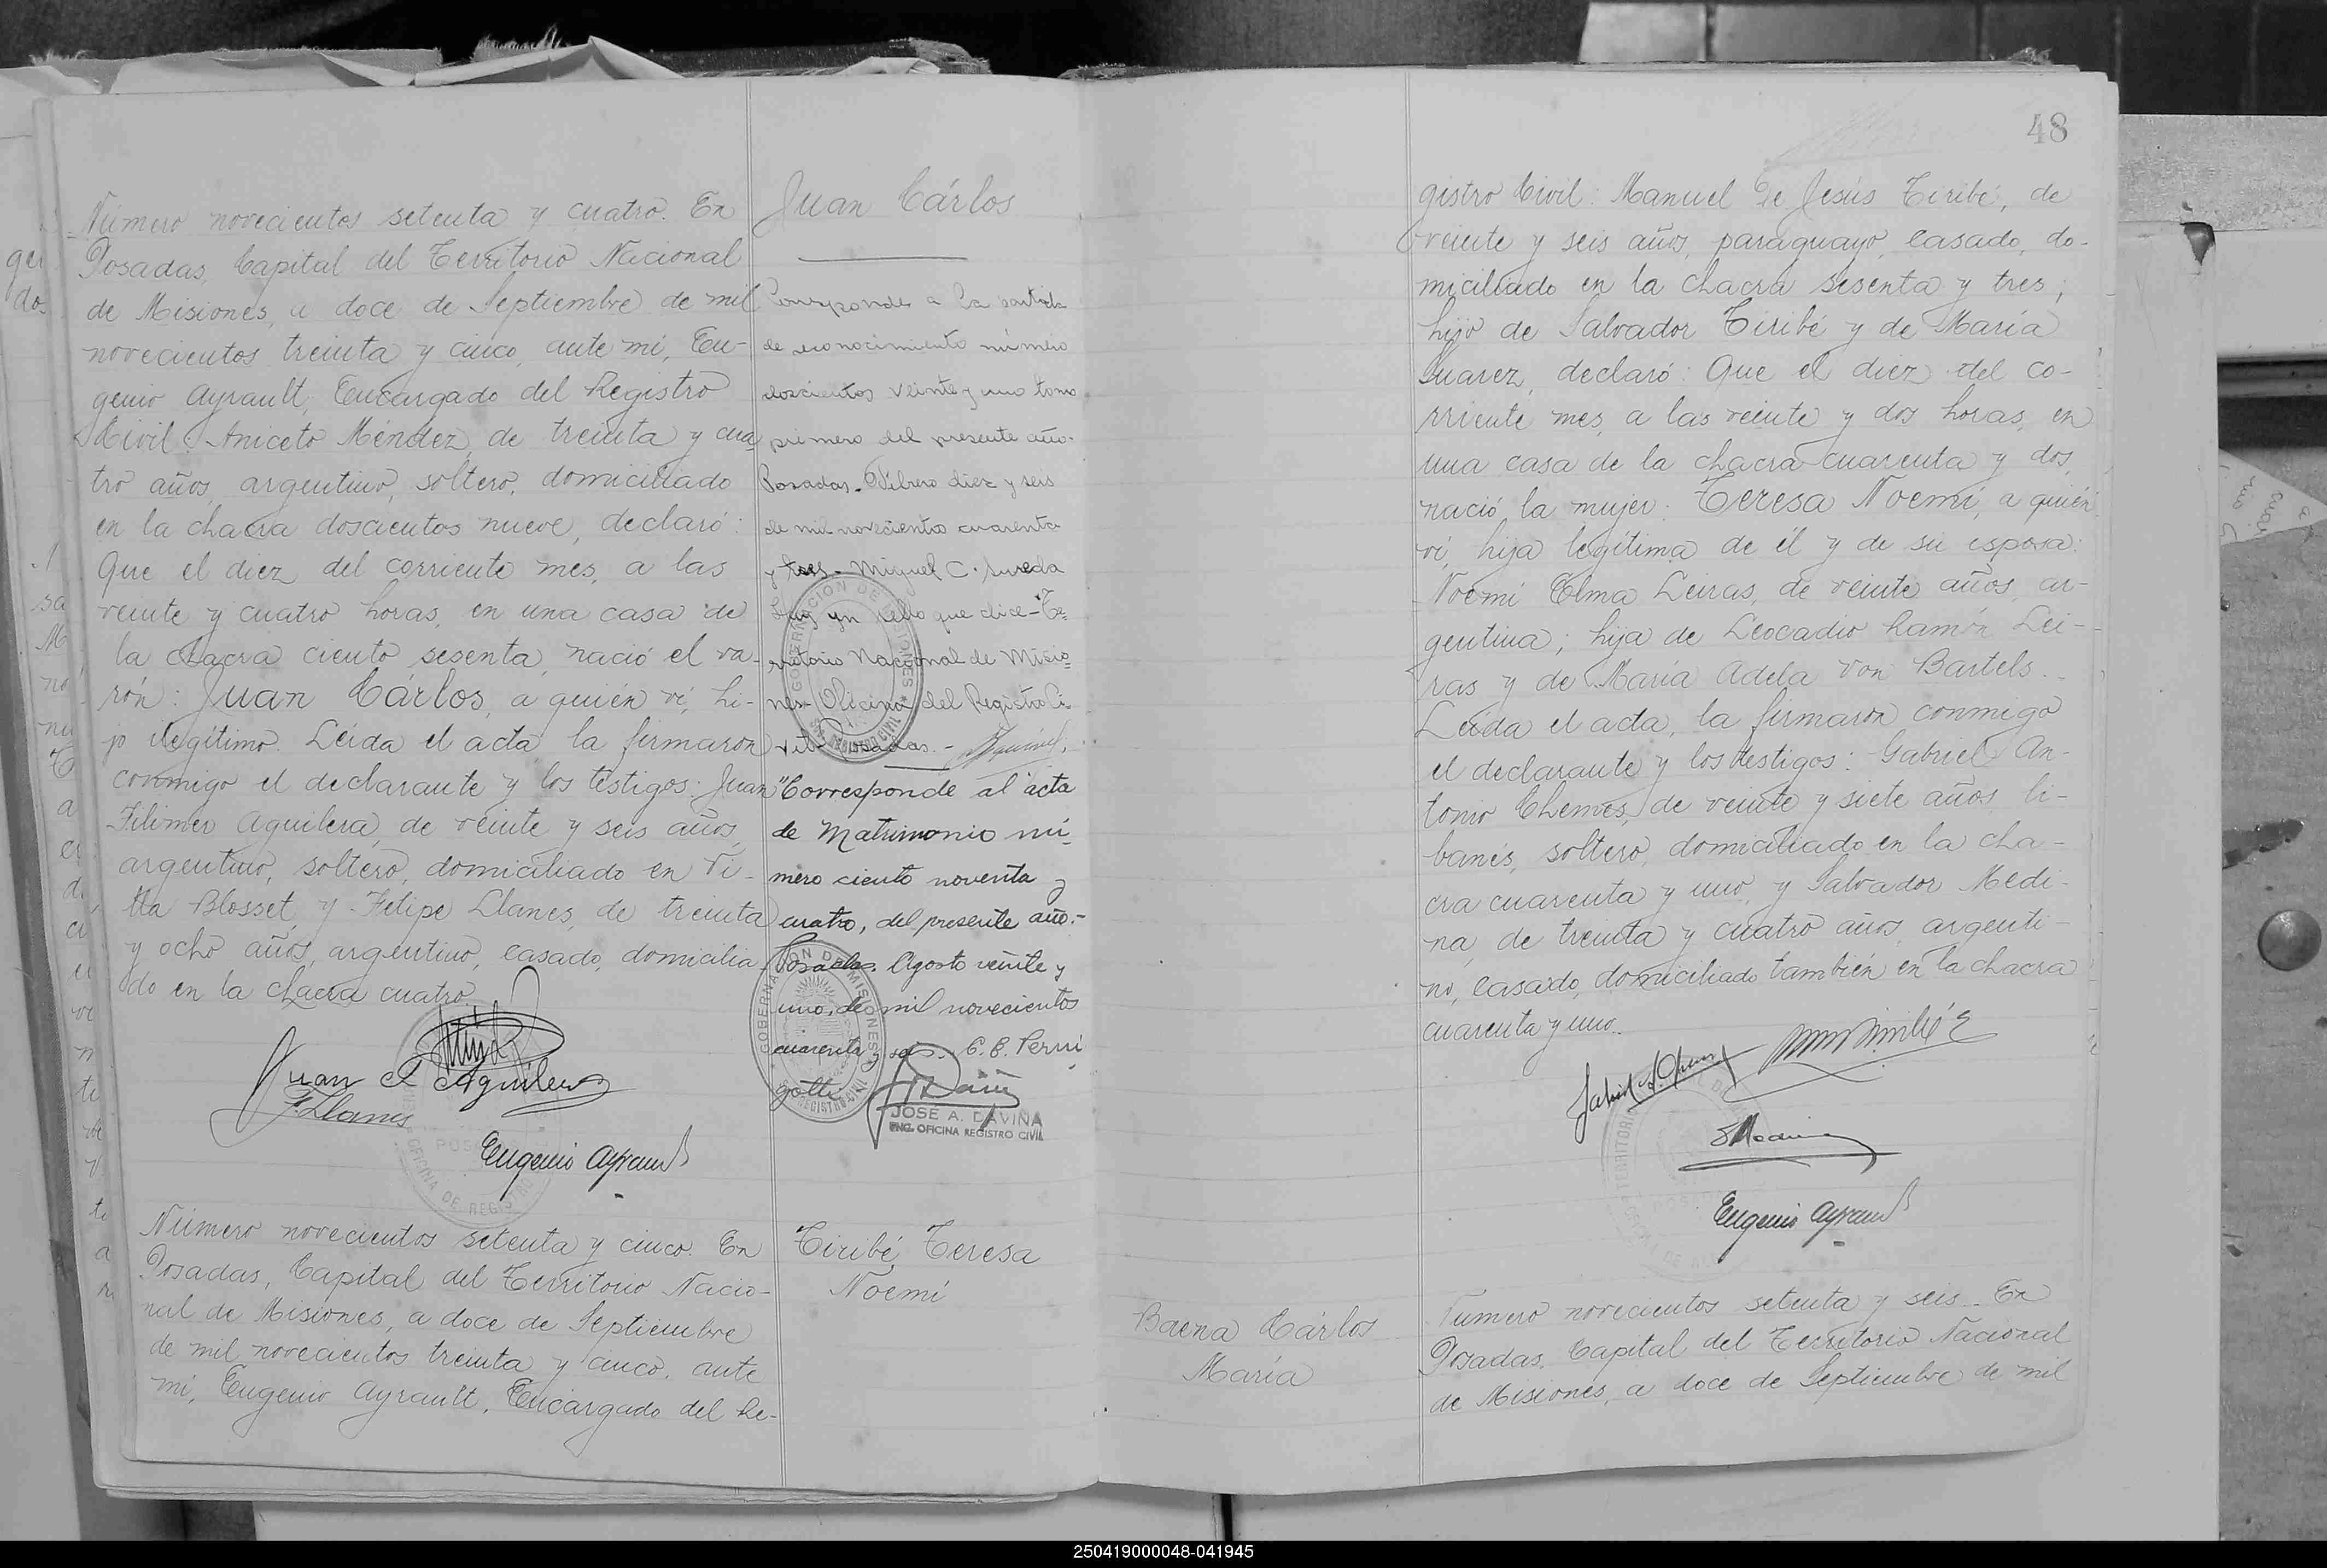 Número novecientos setenta y cuatro. En
Posadas, Capital del Territorio Nacional
de Misiones, a doce de Septiembre de mil
novecientos treinta y cinco, ante mí, Eu-
genio Ayrault, Encargado del Registro
Civil: Aniceto Méndez, de treinta y cua
tro años, argentino, soltero, domiciliado
en la chacra doscientos nueve, declaró:
Que el diez del corriente mes, a las
veinte y cuatro horas, en una casa de
la chacra ciento sesenta, nació el va-
rón: Juan Cárlos, a quién ví, hi-
jo ilegítimo. Leída el acta la firmaron
conmigo el declarante y los testigos: Juan
Filimer Aguilera, de veinte y seis años,
argentino, soltero, domiciliado en Vi-
lla Blosset, y Felipe Llanes, de treinta
y ocho años, argentino, casado, domicilia
do en la chacra cuatro.
Juan Aguilera
F. Llanes
Eugenio Ayrault
Juan Cárlos
Corresponde a la partida
de reconocimiento número
doscientos veinte y uno tomo
primero del presente año.
Posadas. Febrero diez y seis
de mil novecientos cuarenta
y tres - Miguel C.
Hay un sello que dice - Te-
rritorio Nacional de Misio-
nes - Oficina del Registro Ci
vil Posadas. -
GOBERNACION DE MISIONES
REGISTRO CIVIL
"Corresponde al acta
de Matrimonio nú-
mero ciento noventa y
cuatro, del presente año.-
Posadas. Agosto veinte y
uno, de mil novecientos
cuarenta y C. E. Perni
gotti
GOBERNACION DE MISIONES
REGISTRO CIVIL
JOSÉ A. DAVIÑA
ENC. OFICINA REGISTRO CIVIL
Número novecientos setenta y cinco. En
Posadas, Capital del Territorio Nacio-
nal de Misiones, a doce de Septiembre
de mil novecientos treinta y cinco, ante
mí, Eugenio Ayrault, Encargado del Re-
Tiribé, Teresa
Noemí
48
gistro Civil: Manuel de Jesús Tiribé, de
veinte y seis años, paraguayo, casado, do-
miciliado en la chacra sesenta y tres;
hijo de Salvador Tiribé y de María
Suarez, declaró: Que el diez del co-
rriente mes, a las veinte y dos horas, en
una casa de la chacra cuarenta y dos,
nació la mujer: Teresa Noemí, a quién
ví, hija legítima de él y de su esposa:
Noemí Elma Leiras, de veinte años, ar-
gentina; hija de Leocadio Ramón Lei-
ras y de María Adela von Bartels.
Leída el acta, la firmaron conmigo
el declarante y los testigos: Gabriel An-
tonio Chemes, de veinte y siete años, li-
banés, soltero, domiciliado en la cha-
cra cuarenta y uno, y Salvador Medi-
na, de treinta y cuatro años, argenti-
no, casado, domiciliado también en la chacra
cuarenta y uno.
S Medina
Eugenio Ayrault
Baena Cárlos
María
Número novecientos setenta y seis. En
Posadas, Capital del Territorio Nacional
de Misiones, a doce de Septiembre de mil
250419000048-041945